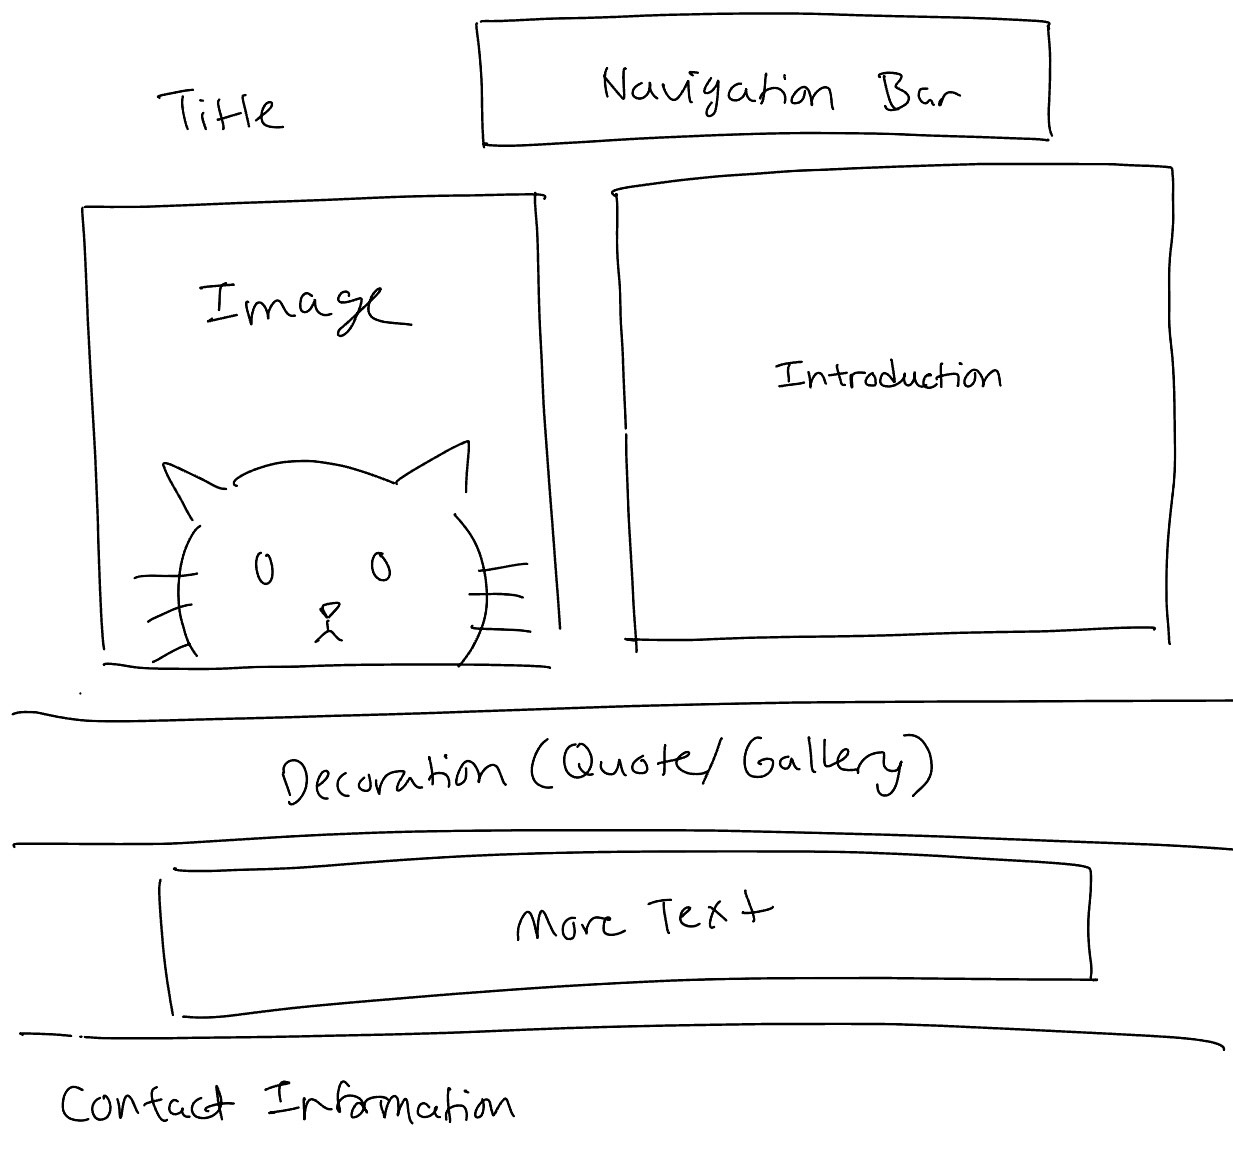 Title
Navigation Bar
Image
Introduction
Decoration (Quote/Gallery)
More Text
Contact Information